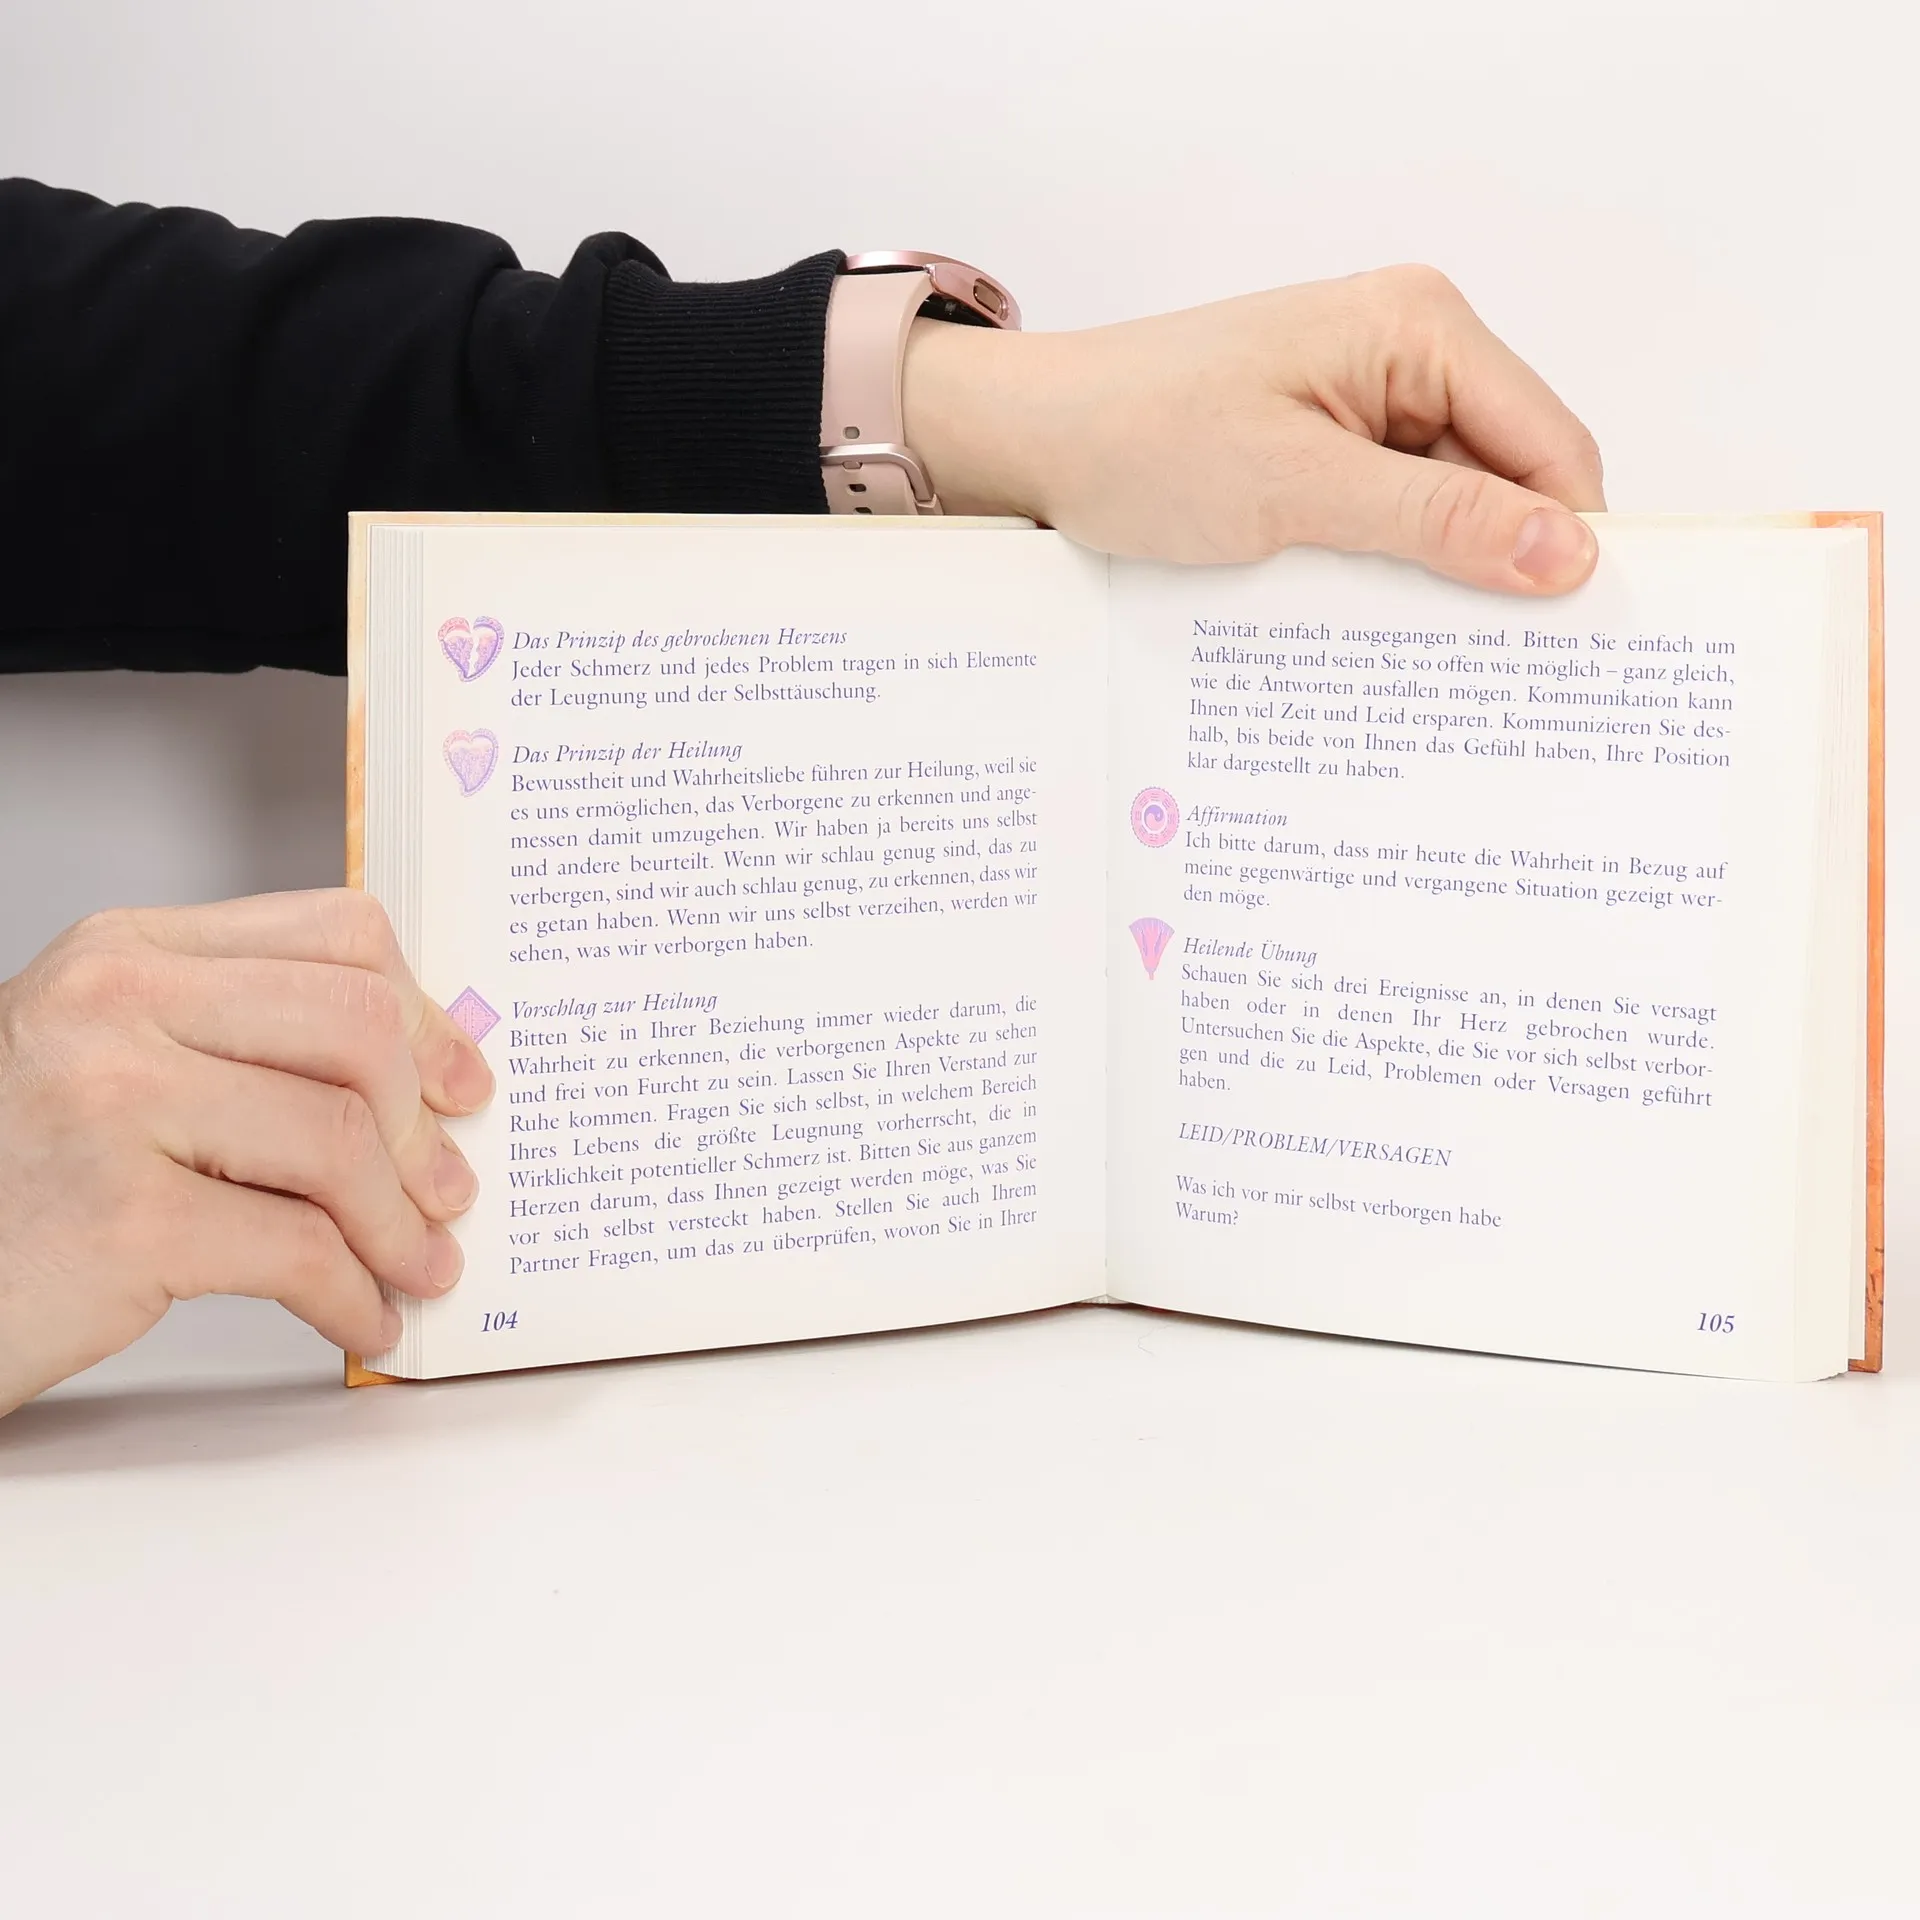 Das Prinzip des gebrochenen Herzens
Jeder Schmerz und jedes Problem tragen in sich Elemente
der Leugnung und der Selbsttäuschung.
Das Prinzip der Heilung
Bewusstheit und Wahrheitsliebe führen zur Heilung, weil sie
es uns ermöglichen, das Verborgene zu erkennen und ange-
messen damit umzugehen. Wir haben ja bereits uns selbst
und andere beurteilt. Wenn wir schlau genug sind, das zu
verbergen, sind wir auch schlau genug, zu erkennen, dass wir
es getan haben. Wenn wir uns selbst verzeihen, werden wir
sehen, was wir verborgen haben.
Vorschlag zur Heilung
Bitten Sie in Ihrer Beziehung immer wieder darum, die
Wahrheit zu erkennen, die verborgenen Aspekte zu sehen
und frei von Furcht zu sein. Lassen Sie Ihren Verstand zur
Ruhe kommen. Fragen Sie sich selbst, in welchem Bereich
Ihres Lebens die größte Leugnung vorherrscht, die in
Wirklichkeit potentieller Schmerz ist. Bitten Sie aus ganzem
Herzen darum, dass Ihnen gezeigt werden möge, was Sie
vor sich selbst versteckt haben. Stellen Sie auch Ihrem
Partner Fragen, um das zu überprüfen, wovon Sie in Ihrer
104
Naivität einfach ausgegangen sind. Bitten Sie einfach um
Aufklärung und seien Sie so offen wie möglich – ganz gleich,
wie die Antworten ausfallen mögen. Kommunikation kann
Ihnen viel Zeit und Leid ersparen. Kommunizieren Sie des-
halb, bis beide von Ihnen das Gefühl haben, Ihre Position
klar dargestellt zu haben.
Affirmation
Ich bitte darum, dass mir heute die Wahrheit in Bezug auf
meine gegenwärtige und vergangene Situation gezeigt wer-
den möge.
Heilende Übung
Schauen Sie sich drei Ereignisse an, in denen Sie versagt
haben oder in denen Ihr Herz gebrochen wurde.
Untersuchen Sie die Aspekte, die Sie vor sich selbst verbor-
gen und die zu Leid, Problemen oder Versagen geführt
haben.
LEID/PROBLEM/VERSAGEN
Was ich vor mir selbst verborgen habe
Warum?
105